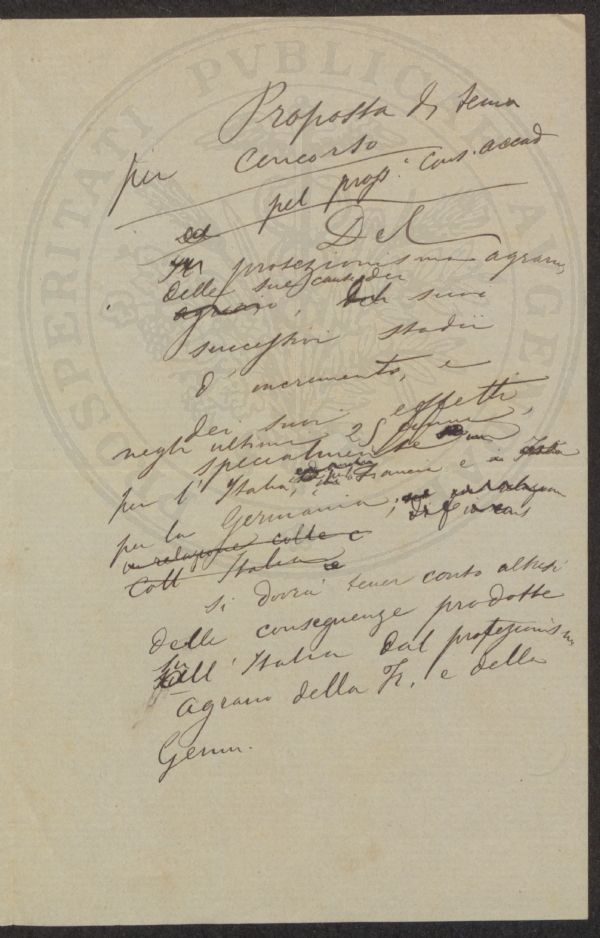 Proposta di tema
per concorso
pel pross.° Cons. accad
Del
protezionismo agrario,
delle sue cause, dei
agrario, dei suoi
successivi stadii
d'incremento, e
dei suoi effetti,
negli ultimi 25 anni
specialmente
per l'Italia, per la Francia e
per la Germania,
in relazione colle
coll'Italia e
si dovrà tener conto altresì
delle conseguenze prodotte
all'Italia dal protezionismo
agrario della Fr. e della
Germ.
PROSPERITATI PVBLICAE AVGENDAE